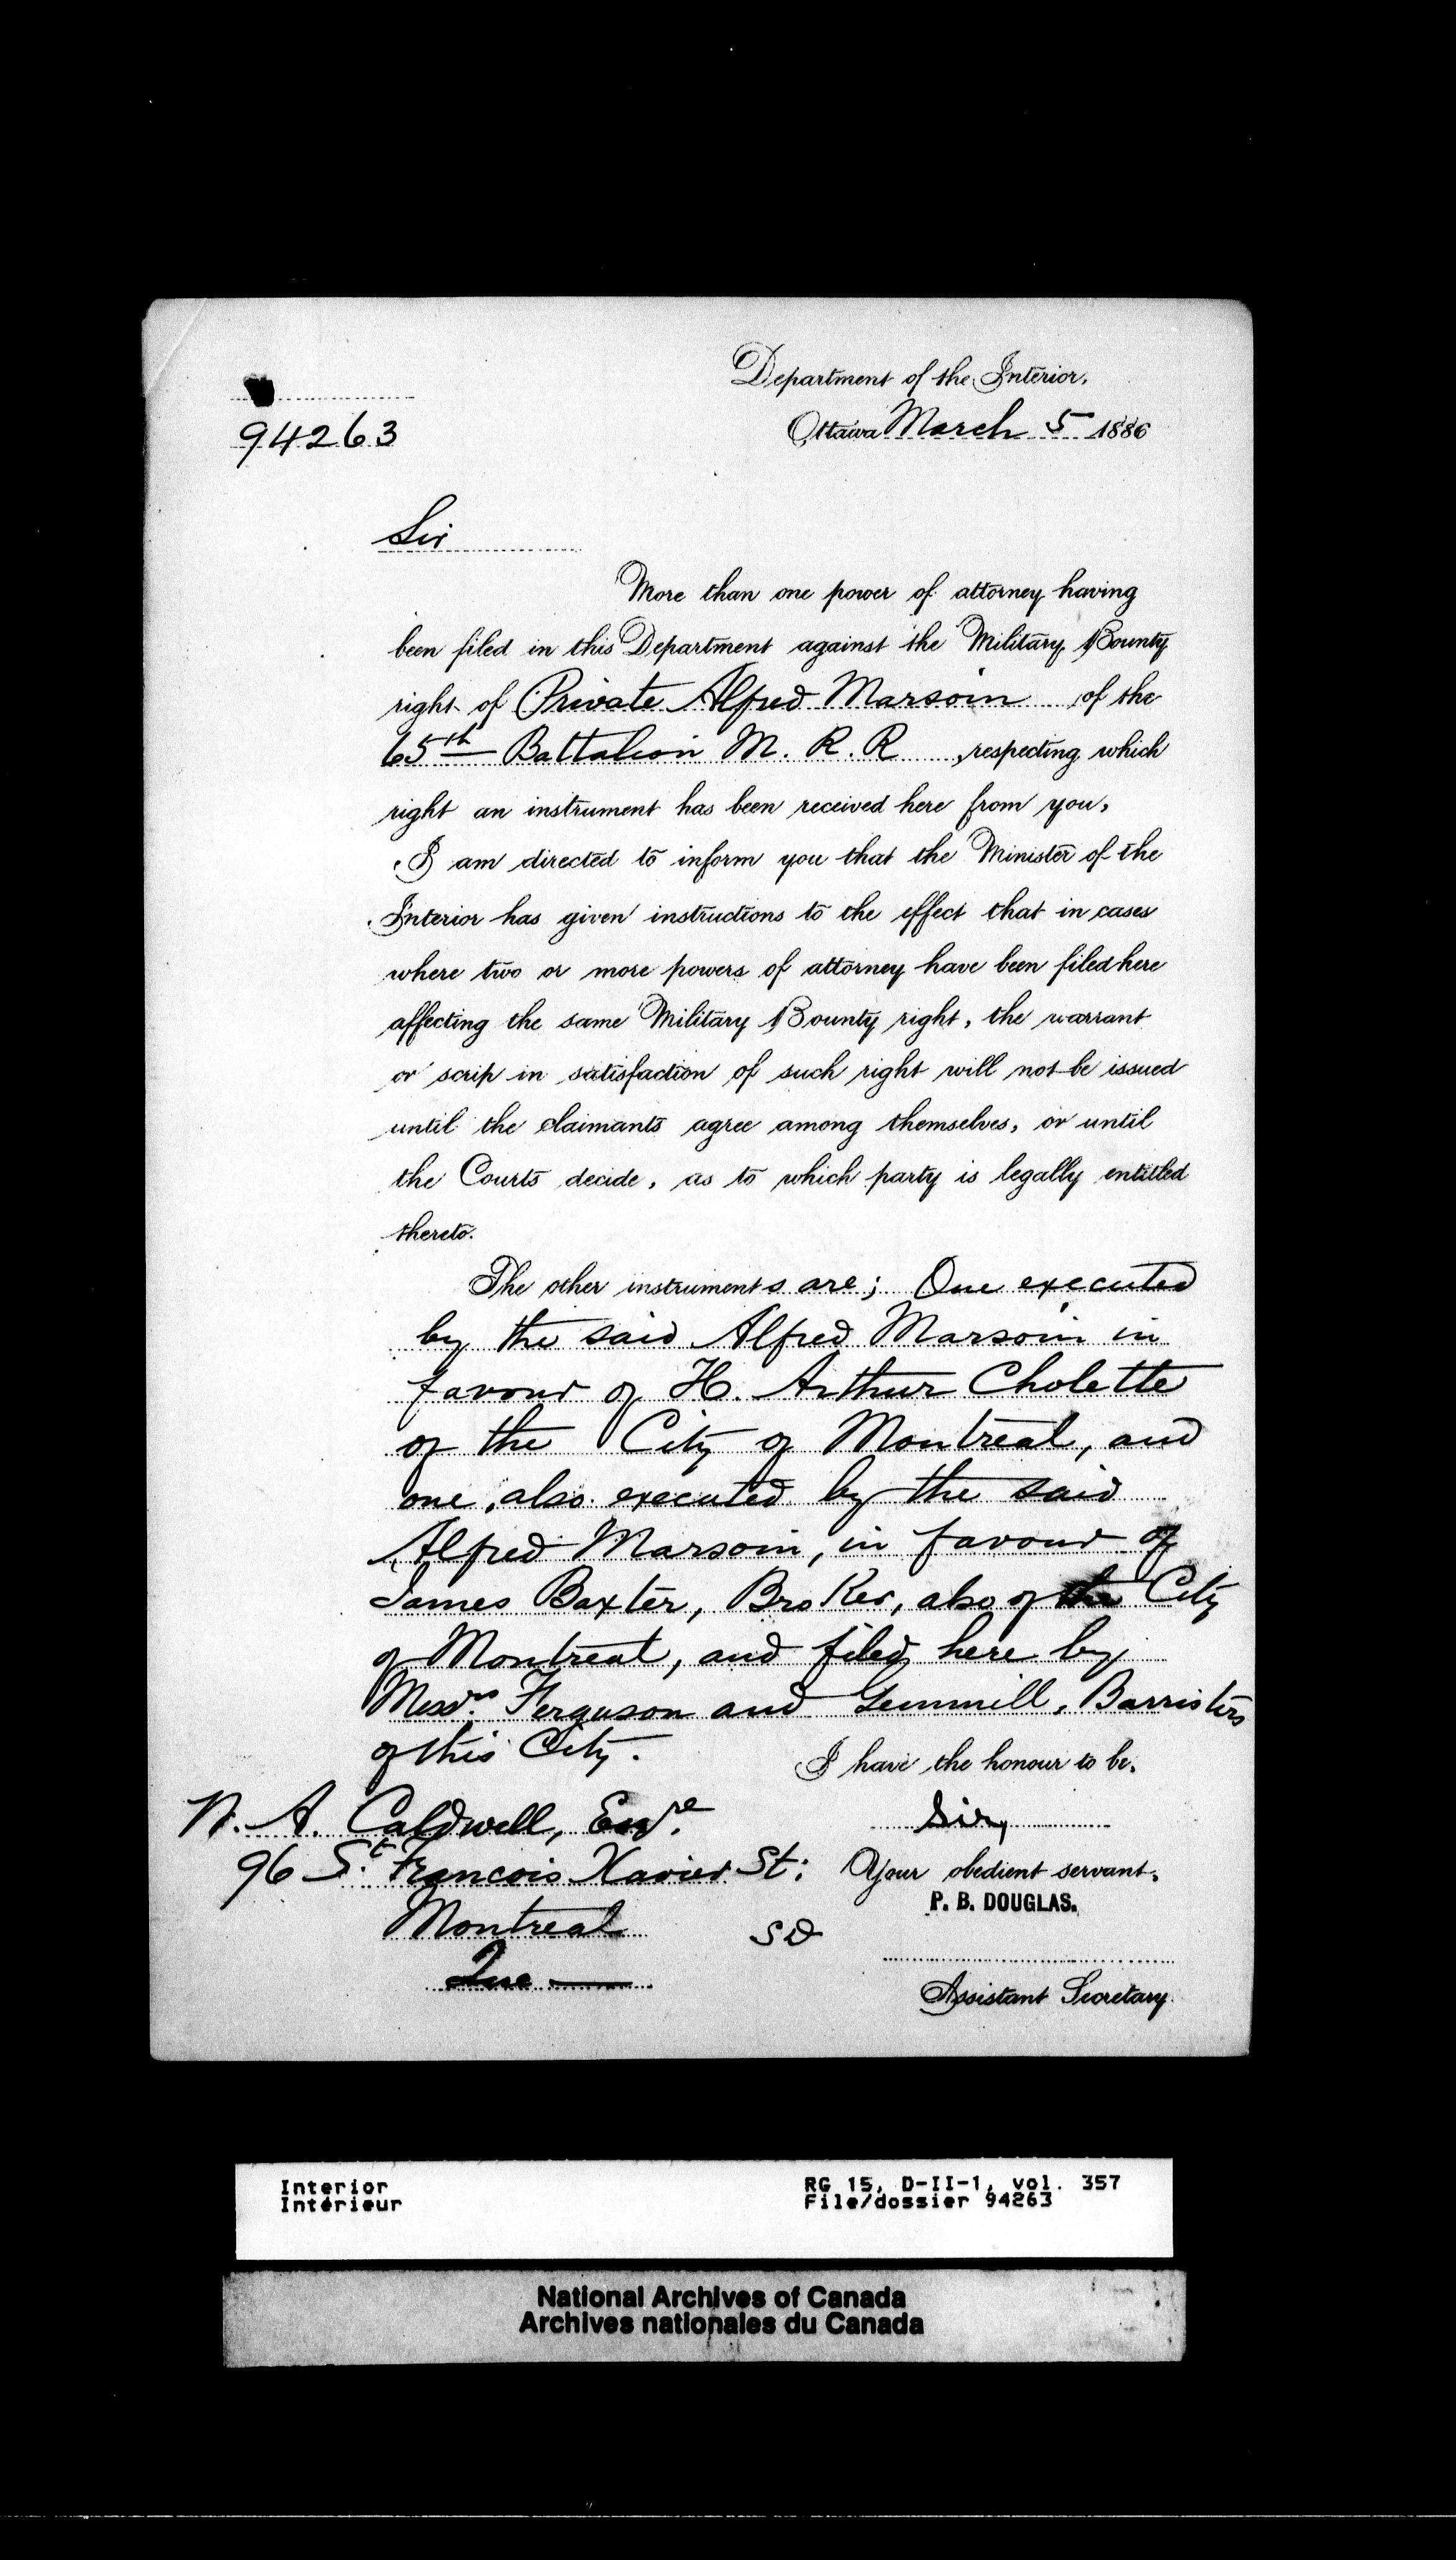 Department of the Interior,
94263
Ottawa March 5 1886
Sir
More than one power of attorney having
been filed in this Department against the Military Bounty
right of Private Alfred Marsoin of the
65th Battalion M. R. R , respecting which
right an instrument has been received here from you,
I am directed to inform you that the Minister of the
Interior has given instructions to the effect that in cases
where two or more powers of attorney have been filed here
affecting the same Military Bounty right, the warrant
or scrip in satisfaction of such right will not be issued
until the claimants agree among themselves, or until
the Courts decide, as to which party is legally entitled
thereto.
The other instruments are; One executed
by the said Alfred Marsoin in
favour of H. Arthur Cholette
of the City of Montreal, and
one, also executed by the said
Alfred Marsoin, in favour of
James Baxter, Broker, also of the City
of Montreal, and filed here by
Messrs. Ferguson and Gemmill, Barristers
of this City.
I have the honour to be,
N. A. Caldwell, Esqre.
Sir,
96 St. Francois Xavier St:
Your obedient servant,
P. B. DOUGLAS.
Montreal
SD
Que
Assistant Secretary.
Interior
Intérieur
RG 15, D-II-1, vol. 357
File/dossier 94263
National Archives of Canada
Archives nationales du Canada